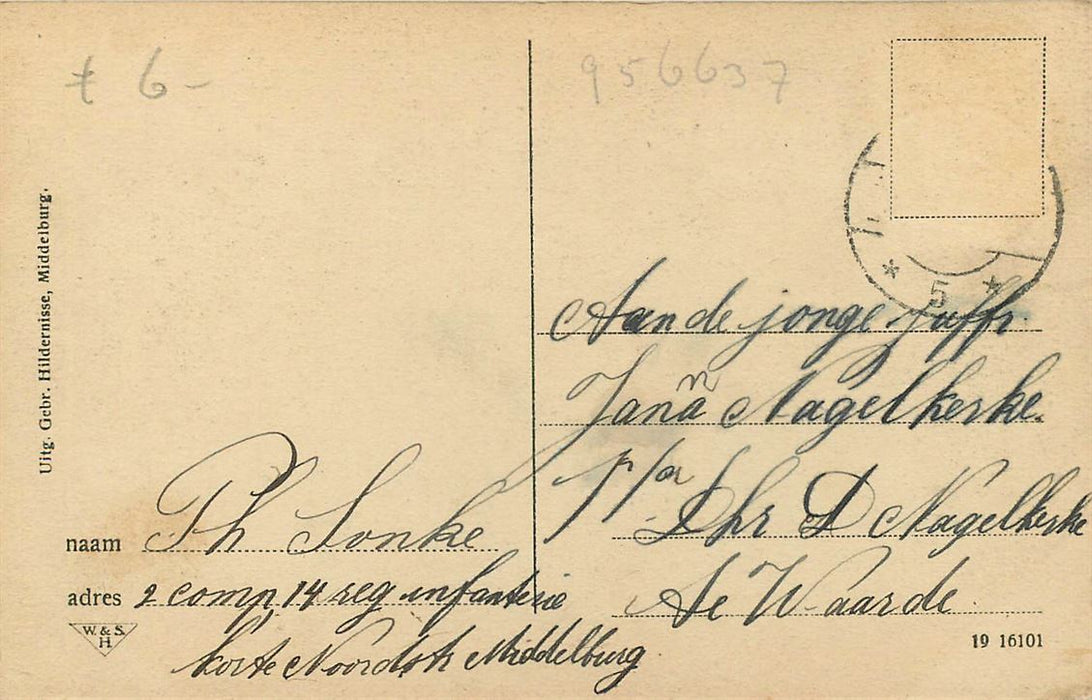 + 6 -
956637
Uitg. Gebr. Hildernisse, Middelburg.
5
Aan de jonge Juffr
Jana Nagelkerke.
p/a
Dhr D Nagelkerke
Waarde
naam Ph Sonke
adres 2 comp 14 reg infanterie
korte Noordstr Middelburg
W. & S.
H
19 16101